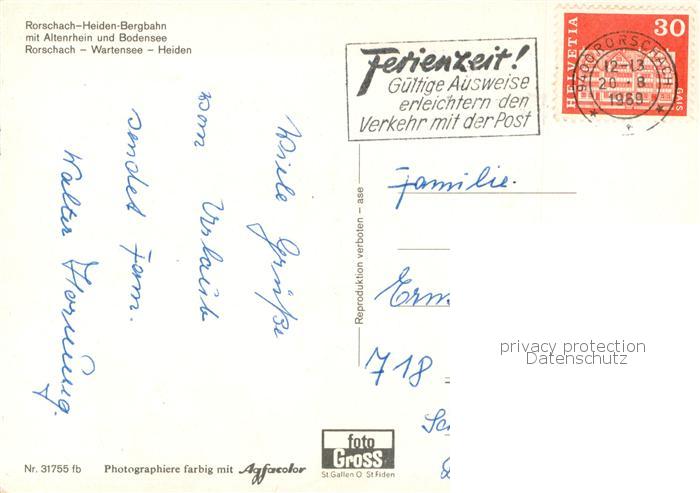 Rorschach-Heiden-Bergbahn
mit Altenrhein und Bodensee
Rorschach – Wartensee – Heiden
Ferienzeit!
Gültige Ausweise
erleichtern den
Verkehr mit der Post
HELVETIA
30
GAIS
9400 RORSCHACH
12-13
20 -8
1969
Viele Grüße
vom Urlaub
sendet Fam.
Walter Hornung.
Reproduktion verboten – ase
Familie.
718
privacy protection
Datenschutz
foto
Gross
St. Gallen O St. Fiden
Nr. 31755 fb
Photographiere farbig mit Agfacolor